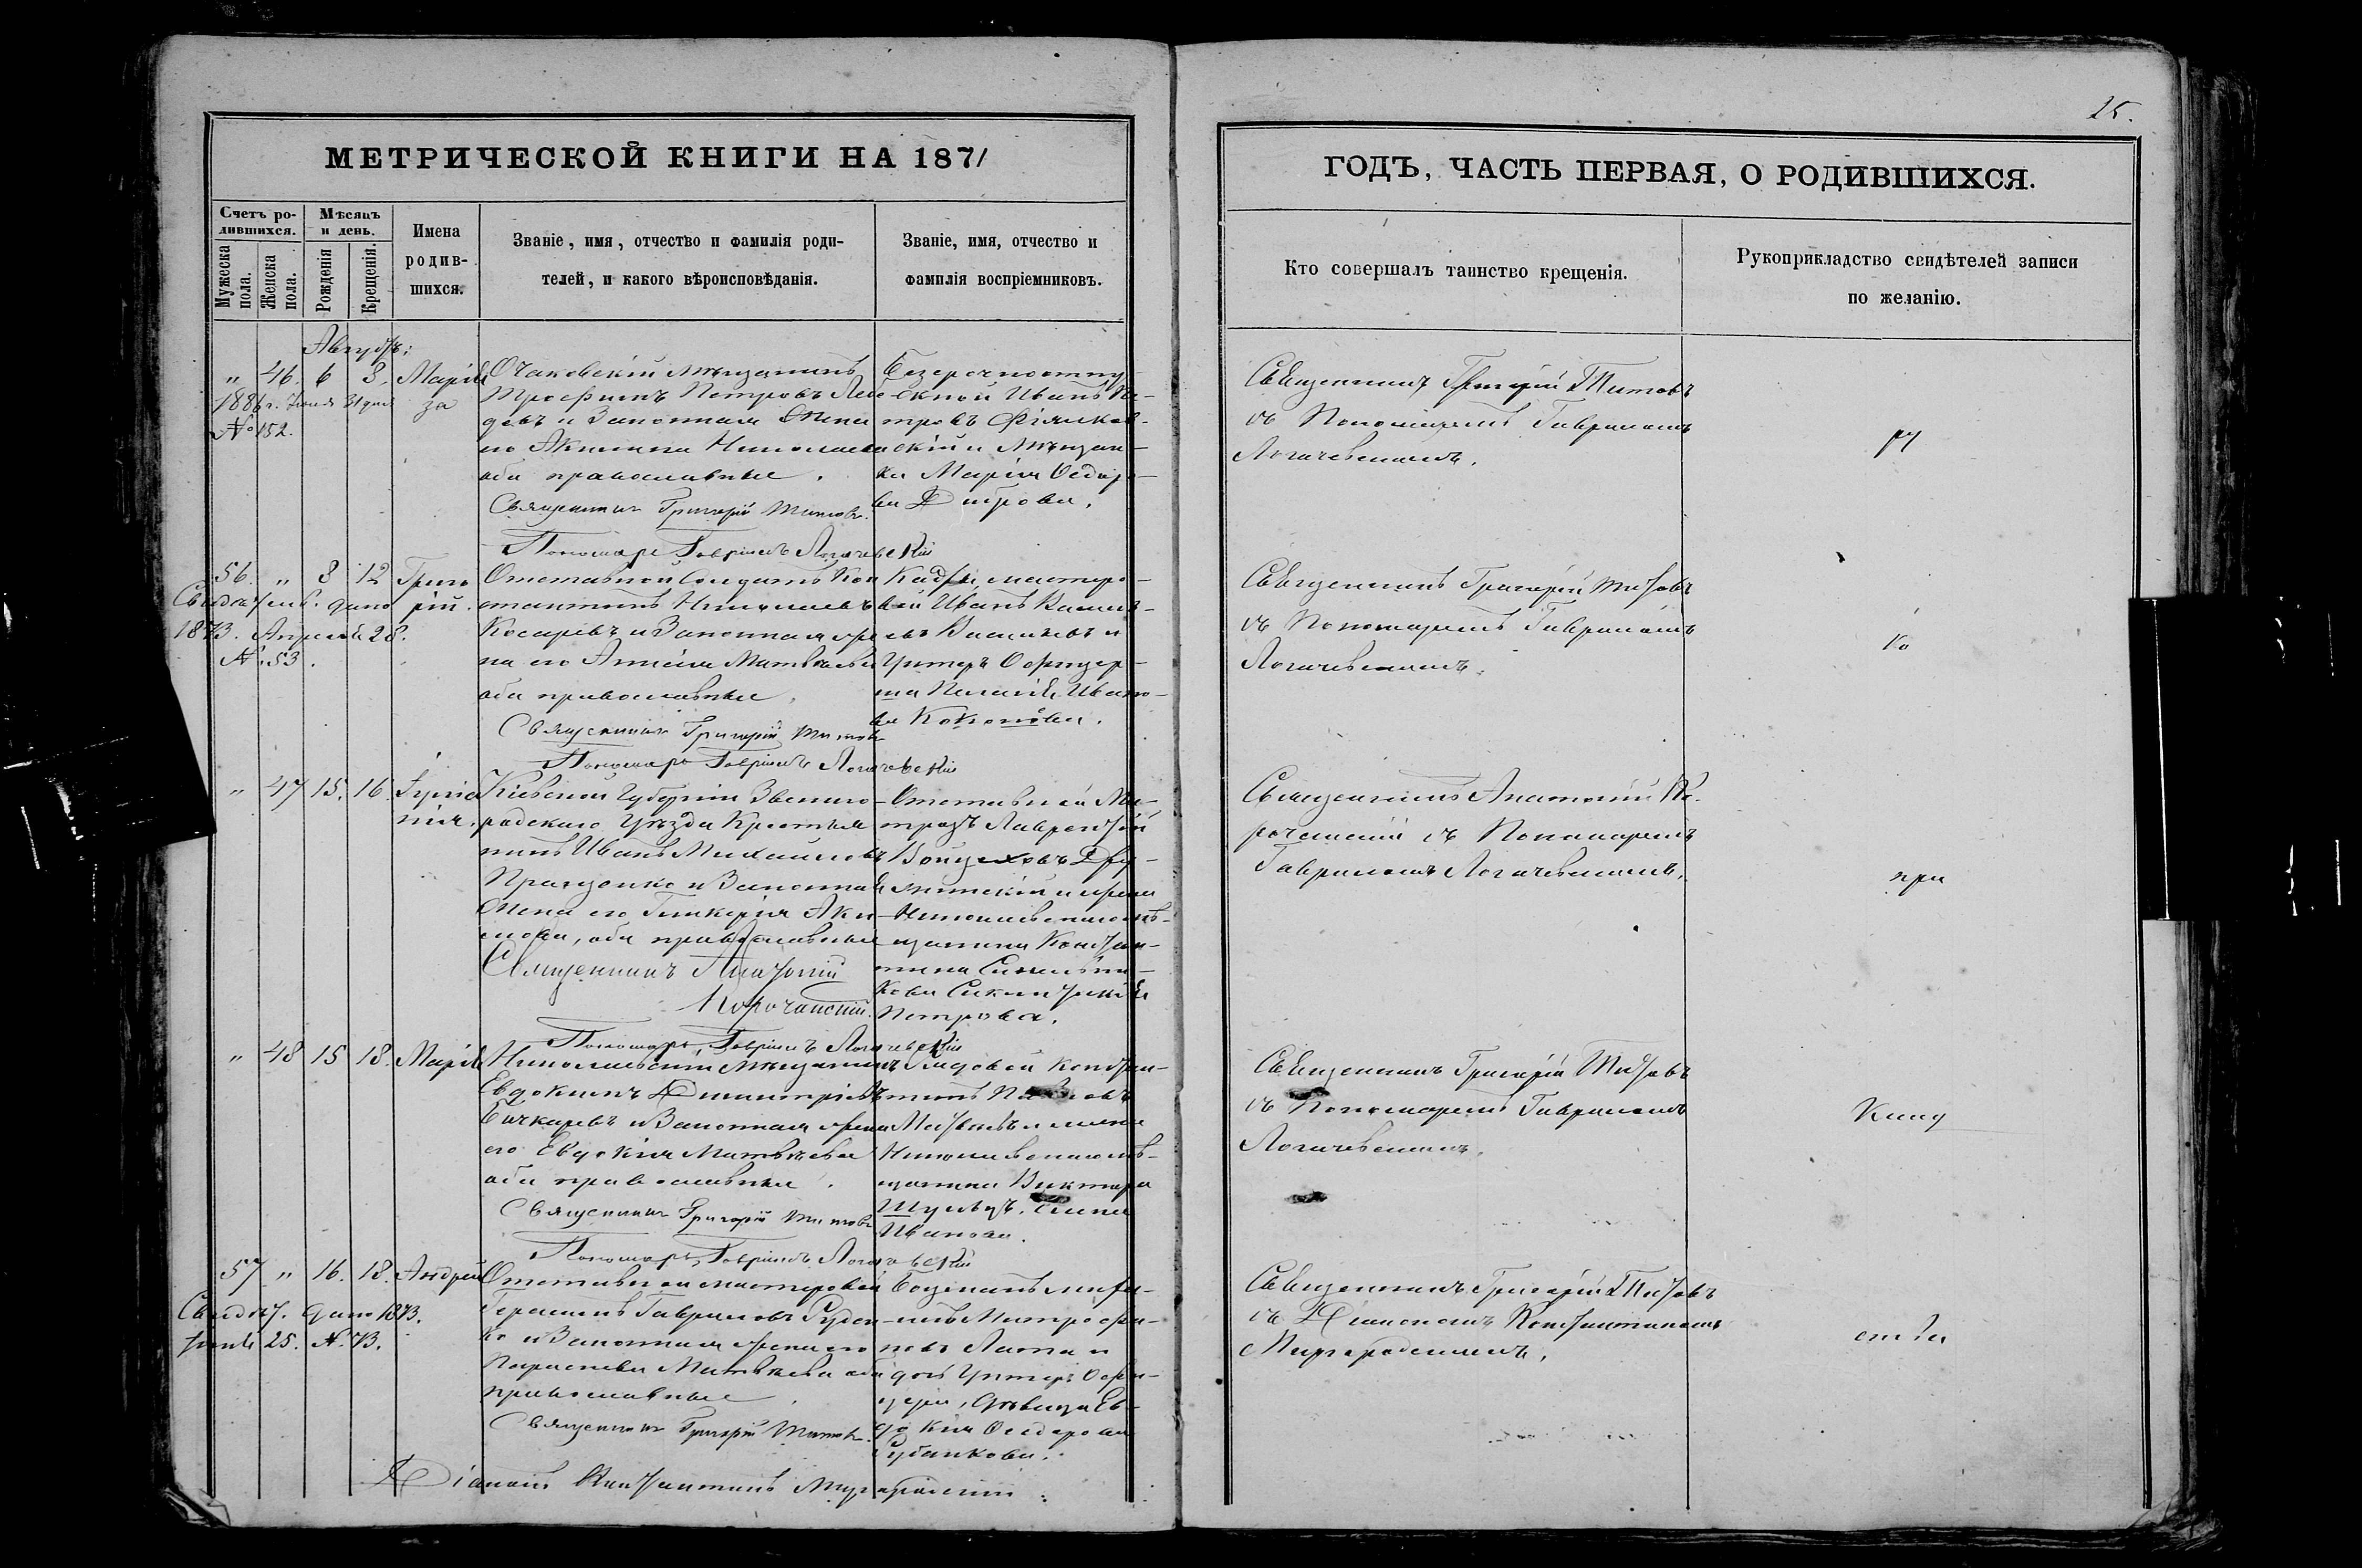 25.
МЕТРИЧЕСКОЙ КНИГИ НА 1871
ГОДЪ, ЧАСТЬ ПЕРВАЯ, О РОДИВШИХСЯ.
Счетъ ро-
дившихся.
Мужеска пола.
Женска пола.
Мѣсяцъ
и день.
Рожденія
Крещенія.
Имена
родив-
шихся.
Званіе, имя, отчество и фамилія роди-
телей, и какого вѣроисповѣданія.
Званіе, имя, отчество и
фамилія воспріемниковъ.
Кто совершалъ таинство крещенія.
Рукоприкладство свидѣтелей записи
по желанію.
Августъ:
" 46. 6 8. Марія
1886 г. Іюля 31 дня за
№ 152.
Очаковскій мѣщанинъ
Трофимъ Петровъ
и Законная Жена
его Акилина Николаева
оба православные.
Священникъ Григорій Титовъ.
Пономарь Гавріилъ Логачевскій
Безсрочноотпу-
скной Иванъ Пе-
тровъ Фіялков-
скій и Мѣщан-
ка Марія Ѳедоро-
ва Диброва.
Священникъ Григорій Титовъ
съ Пономаремъ Гавриломъ
Логачевскимъ.
ру
56. " 8 12 Григо
рій.
Свидѣтел. дано
1873. Апрѣля 28.
№. 53.
Отставной Солдатъ Кон
стантинъ Николаевъ
Косаревъ и Законная же
на его Анисія Матвѣева
оба православные.
Священникъ Григорій Титовъ
Пономарь Гавріилъ Логачевскій
Кадр. мастеро-
вой Иванъ Васильевъ
и
Унтеръ Офицер-
ша Пелагія Ивано-
ва Коконова.
Священникъ Григорій Титовъ
съ Пономаремъ Гавриломъ
Логачевскимъ.
ко
" 47 15. 16.
Кіевской Губерніи Звениго-
родскаго Уѣзда Крестья
нинъ Иванъ Михайловъ
Проценко и Законная
Жена его Гликерія Аки-
мова, оба православные
Священникъ Анатолій
Корочанскій.
Пономарь Гавріилъ Логачевскій
Отставной Ма-
трозъ Лаврентій
Войцеховъ
и жена
Николаевскаго мѣ-
щанина Констан-
тина
Петрова.
Священникъ Анатолій Ко-
рочанскій съ Пономаремъ
Гавриломъ Логачевскимъ.
при
" 48 15 18. Марія
Николаевскій мѣщанинъ
Евдокимъ Димитріевъ
Бичкаревъ и Законная жена
его Евдокія Матвѣева
оба православные.
Священникъ Григорій Титовъ
Пономарь Гавріилъ Логачевскій
Рядовой Констан-
тинъ
и жена
Николаевскаго мѣ-
щанина Виктора
Шульцъ. Елена
Иванова.
Священникъ Григорій Титовъ
съ Пономаремъ Гавриломъ
Логачевскимъ.
книд
57 " 16. 18. Андрей
Свидѣт. дано 1873.
Іюня 25. №. 73.
Отставной мастеровой
Герасимъ Гавриловъ Руден-
ко и Законная жена его
Параскева Матвѣева оба
православные.
Священникъ Григорій Титовъ.
Діаконъ Константинъ Миргородскій.
Боцманъ
Митрофа-
новъ и
дочь Унтеръ Офи-
цера, дѣвица Ев-
докія Ѳедорова
Рубанкова.
Священникъ Григорій Титовъ
съ Діакономъ Константиномъ
Миргородскимъ.